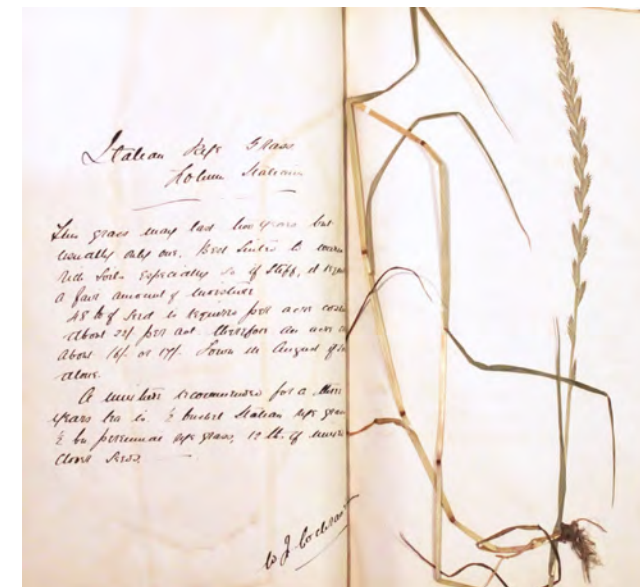 Italian Rye Grass
Lolium Italicum
This grass may last two years but
usually only one. Best suited to warm
rich soils especially so if stiff, it
a fair amount of moisture
45 lb of seed is required per acre
About 22/- per cwt. therefore an acre
About 16/- or 17/- Sown in August if
alone.
A mixture recommended for a three
years lea is ½ bushel Italian rye grass
½ bu perennial rye grass, 12 lb. of
Clover Seeds.
W J Cochrane